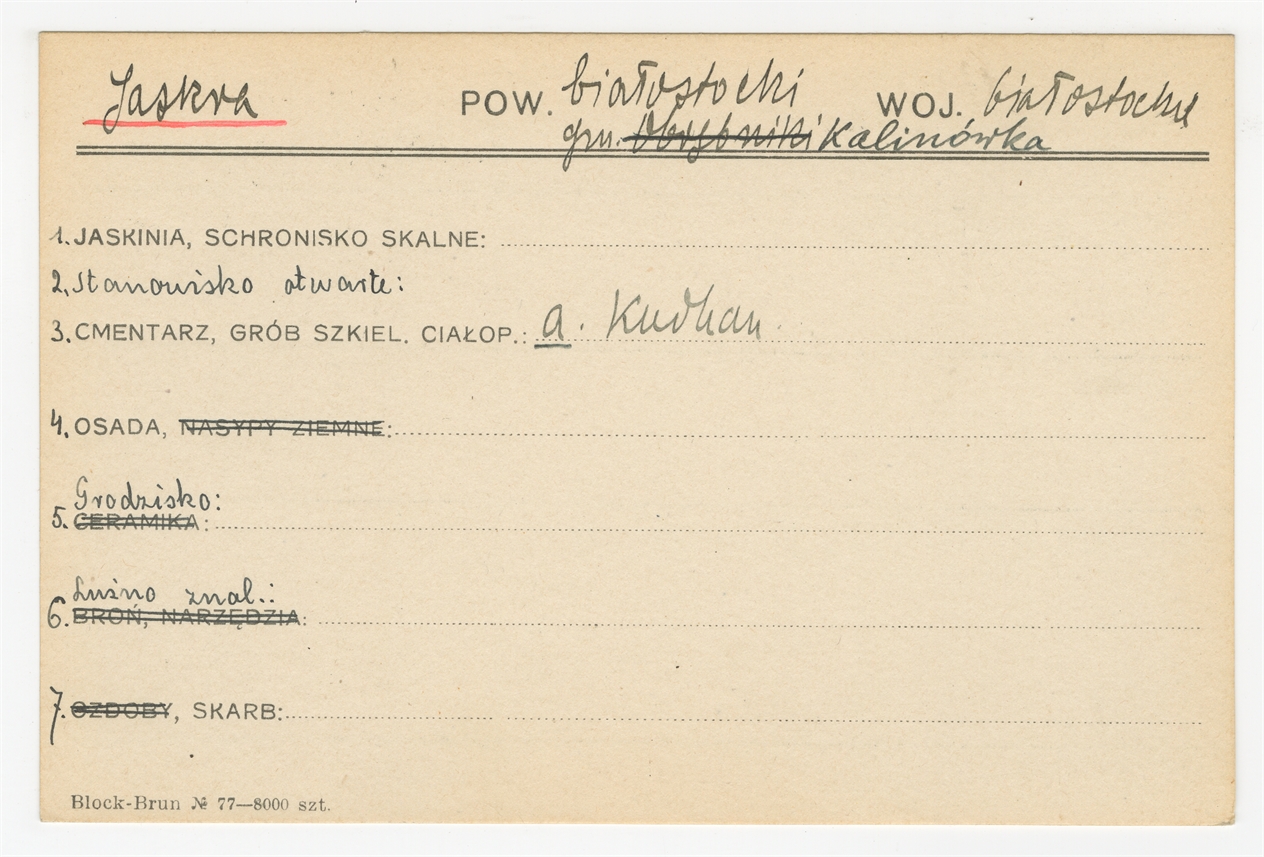 Jaskra POW. białostocki WOJ. białostockie
gm. Obrębniki Kalinówka
1. JASKINIA, SCHRONISKO SKALNE:
2. Stanowisko otwarte:
3. CMENTARZ, GRÓB SZKIEL. CIAŁOP.: a. Kurhan
4. OSADA, NASYPY ZIEMNE:
Grodzisko:
5. CERAMIKA:
Luźno znal.:
6. BROŃ, NARZĘDZIA:
7. OZDOBY, SKARB:
Block-Brun № 77—8000 szt.